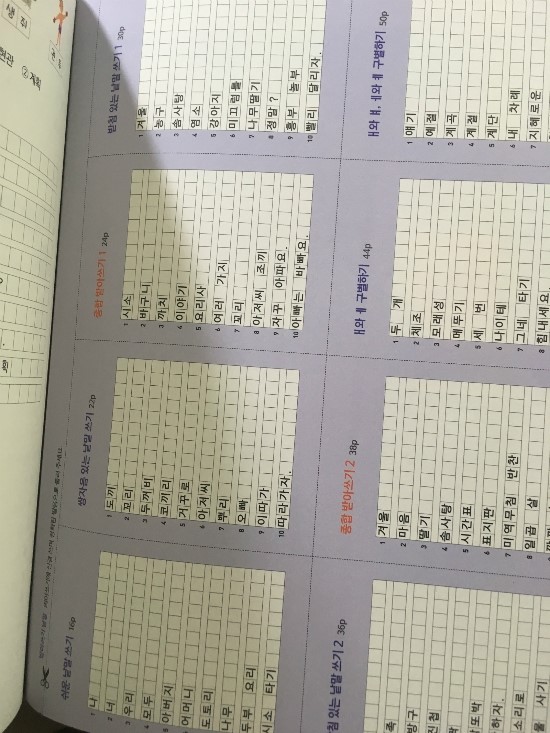 생 집
현관 ② 계획
쉬운 낱말 쓰기 16p
1 나
2 너
3 우리
4 모두
5 아버지
6 어머니
도토리
나무
두부 요리
시소 타기
쌍자음 있는 낱말 쓰기 22p
1 도끼
2 꼬리
3 두꺼비
4 코끼리
5 거꾸로
6 아저씨
7 뿌리
8 오빠
9 이따가
10 따라가자.
종합 받아쓰기 1 24p
1 시소
2 바구니
3 까치
4 이야기
5 요리사
6 여러 가지
7 꼬리
8 아저씨 조끼
9 자꾸 아파요.
10 아빠는 바빠요.
받침 있는 낱말 쓰기 1 30p
1 겨울
2 농구
3 솜사탕
4 염소
5 강아지
6 미끄럼틀
7 나무딸기
8 정말?
9 흥부 놀부
10 빨리 달리자.
침 있는 낱말 쓰기 2 36p
족
방구
진첩
또박
하자.
소리로
울 사기
종합 받아쓰기 2 38p
1 겨울
2 마음
3 딸기
4 솜사탕
5 시간표
6 표지판
7 미역무침 반찬
8 일곱 살
ㅐ와 ㅔ 구별하기 44p
1 두 개
2 체조
3 모래성
4 메뚜기
5 세 번
6 나이테
7 그네 타기
8 힘내세요.
ㅒ와 ㅖ, ㅐ와 ㅔ 구별하기 50p
1 얘기
2 예절
3 계곡
4 계절
5 계단
6 내 차례
7 지혜로운